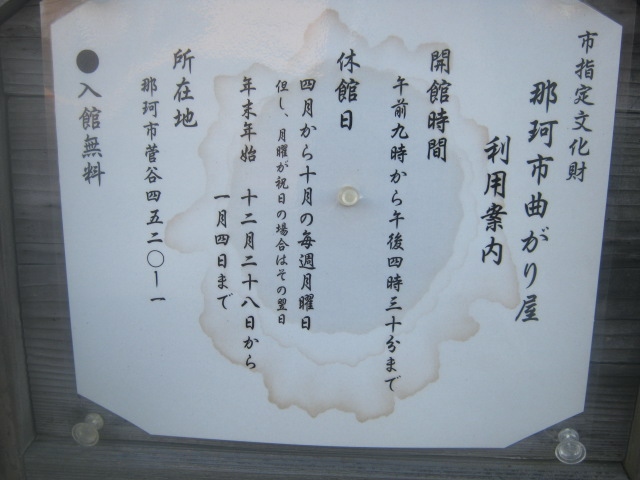 市指定文化財
那珂市曲がり屋
利用案内
開館時間
午前九時から午後四時三十分まで
休館日
四月から十月の毎週月曜日
但し、月曜が祝日の場合はその翌日
年末年始 十二月二十八日から
一月四日まで
所在地
那珂市菅谷四五二〇ー一
●入館無料